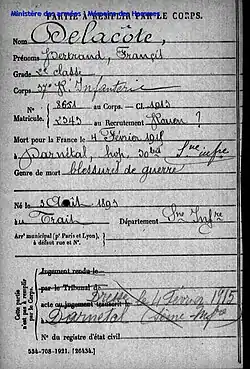 PARTIE À REMPLIR PAR LE CORPS.
Ministère des armées - Mémoire des Hommes
Nom Delacôte,
Prénoms Bertrand, Francis
Grade 2e classe
Corps 37e R. Infanterie
N° 8651 au Corps. — Cl. 1913
Matricule. 2343 au Recrutement Rouen ?
Mort pour la France le 4 Février 1915
à Darnétal, hop.
Genre de mort blessures de guerre
Né le 2 Août 1893
au Trait Département Sne Infre
Arrt municipal (pr Paris et Lyon),
à défaut rue et N°.
Cette partie
n'est pas à remplir
par le Corps.
Jugement rendu le
par le Tribunal de
acte ou jugement le 4 Février 1915
Darnétal (Seine Infre)
N° du registre d'état civil
534-708-1921. [26434.]